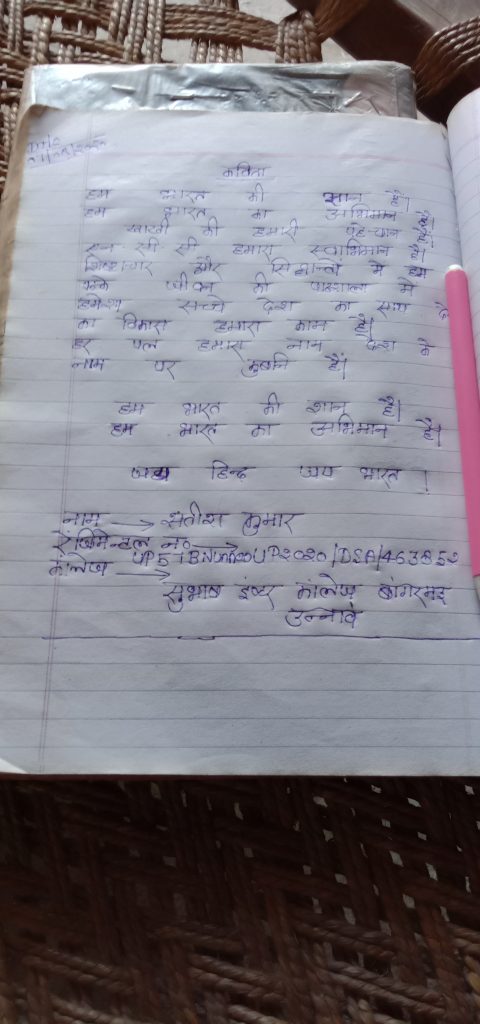 कविता
हम भारत की शान है।
हम भारत का अभिमान है।
खाखी की हमारी पहचान है।
एन सी सी हमारा स्वाभिमान है।
शिष्टाचार और सिद्धान्तो मे हम
पलके जीवन की पाठशाला मे
हमेशा सच्चे देश का साथ दे
का विकास हमारा काम है।
हर पल हमारा नाम देश के
नाम पर कुर्बान है।
हम भारत की शान है।
हम भारत का अभिमान है।
जय हिन्द जय भारत !
नाम → सतीश कुमार
रेजिमेन्टल न० → UP2020/DSA/463852
कॉलेज →
सुभाष इंटर कॉलेज बांगरमऊ
उन्नाव